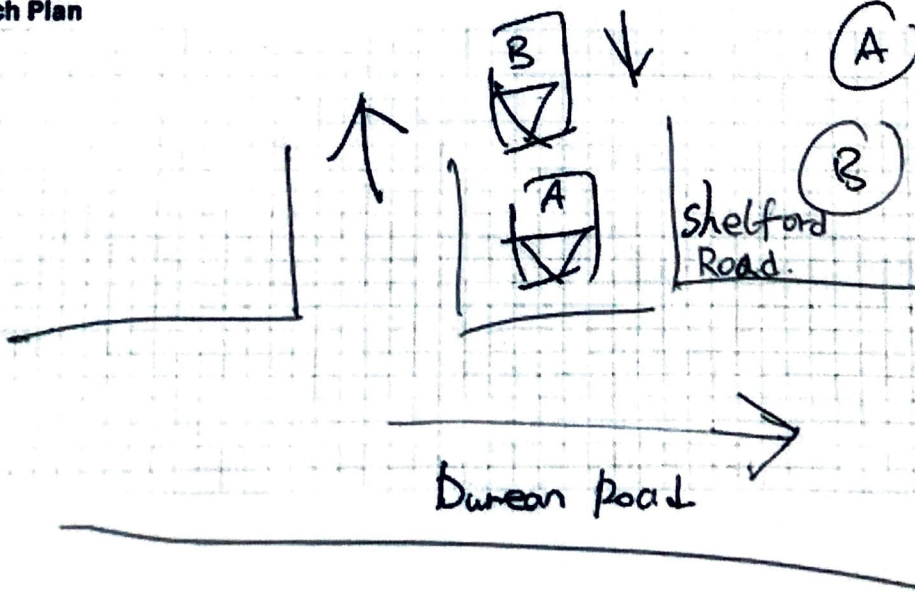 ch Plan
B
A
A
B
Shelford
Road.
Road